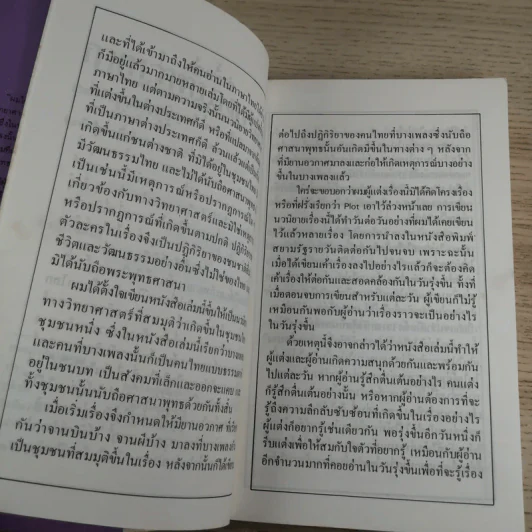 และที่ได้เข้ามาถึงให้คนอ่านในภาษาไทยได้
ก็มีอยู่แล้วมากมายหลายเล่มโดยที่ได้มี
ภาษาไทย แต่ตามความจริงนั้นนวนิยาย
ที่แต่งขึ้นในต่างประเทศก็ดี หรือที่แปลมาจาก
ที่เป็นภาษาต่างประเทศก็ดี ล้วนแล้วแต่เป็น
เกิดขึ้นแก่ชนต่างชาติ ที่มิได้อยู่ในชุมชนไทย
มีวัฒนธรรมไทย และไม่ได้นับถือศาสนาพุทธ
เป็นเช่นนี้มีเหตุการณ์หรือปรากฏการณ์
เกี่ยวข้องกับทางวิทยาศาสตร์และมิใช่เหตุ
หรือปรากฏการณ์ที่เกิดขึ้นตามปกติ ปฏิกิริยา
ตัวละครในเรื่องจึงเป็นปฏิกิริยาของชนชาติ
ชีวิตและวัฒนธรรมอย่างอื่นซึ่งไม่ใช่ของไทย
มิได้นับถือพระพุทธศาสนา
ผมได้ตั้งใจเขียนหนังสือเล่มนี้ขึ้นให้เป็น
ทางวิทยาศาสตร์ที่สมมุติว่าเกิดขึ้นในชุมชน
ชุมชนหนึ่ง ซึ่งในหนังสือเล่มนี้เรียกว่าบางเพลง
และคนที่บางเพลงนั้นก็เป็นคนไทยแบบธรรมดา
อยู่ในชนบท เป็นสังคมที่เล็กและออกจะแคบ
ทั้งชุมชนนั้นนับถือศาสนาพุทธด้วยกันทั้งสิ้น
เมื่อเริ่มเรื่องจึงกำหนดให้มียานอวกาศ ที่
กันว่าจานบินบ้าง จานผีบ้าง มาลงที่บางเพลง
เป็นชุมชนที่สมมุติขึ้นในเรื่อง หลังจากนั้นก็ได้
ต่อไปถึงปฏิกิริยาของคนไทยที่บางเพลงซึ่งนับถือ
ศาสนาพุทธนั้นอันเกิดขึ้นในทางต่าง ๆ หลังจาก
ที่มียานอวกาศมาลงและก่อให้เกิดเหตุการณ์บางอย่าง
ขึ้นในบางเพลงแล้ว
ใคร่จะขอบอกว่าผมผู้แต่งเรื่องนี้มิได้คิดโครงเรื่อง
หรือที่ฝรั่งเรียกว่า Plot เอาไว้ล่วงหน้าเลย การเขียน
นวนิยายเรื่องนี้ได้ทำวันต่อวันอย่างที่ผมได้เคยเขียน
ไว้แล้วหลายเรื่อง โดยการนำลงในหนังสือพิมพ์
สยามรัฐรายวันติดต่อกันไปจนจบ เพราะฉะนั้น
เมื่อได้เขียนเค้าเรื่องลงไปอย่างไรแล้วก็จะต้องคิด
เค้าเรื่องให้ต่อกันและสอดคล้องกันในวันรุ่งขึ้น ทั้งที่
เมื่อตอนจบการเขียนสำหรับแต่ละวัน ผู้เขียนก็ไม่รู้
เหมือนกันพอกับผู้อ่านว่าเรื่องราวจะเป็นอย่างไร
ในวันรุ่งขึ้น
ด้วยเหตุนี้จึงอาจกล่าวได้ว่าหนังสือเล่มนี้ทำให้
ผู้แต่งและผู้อ่านเกิดความสนุกด้วยกันและพร้อมกัน
ไปแต่ละวัน หากผู้อ่านรู้สึกตื่นเต้นอย่างไร คนแต่ง
ก็รู้สึกตื่นเต้นอย่างนั้น หรือหากผู้อ่านต้องการที่จะ
รู้ถึงความลึกลับซับซ้อนที่เกิดขึ้นในเรื่องอย่างไร
ผู้แต่งก็อยากรู้เช่นเดียวกัน พอรุ่งขึ้นอีกวันหนึ่งก็
รีบแต่งเพื่อให้สมกับใจตัวที่อยากรู้ เหมือนกับผู้อ่าน
อีกจำนวนมากที่คอยอ่านในวันรุ่งขึ้นเพื่อที่จะรู้เรื่อง